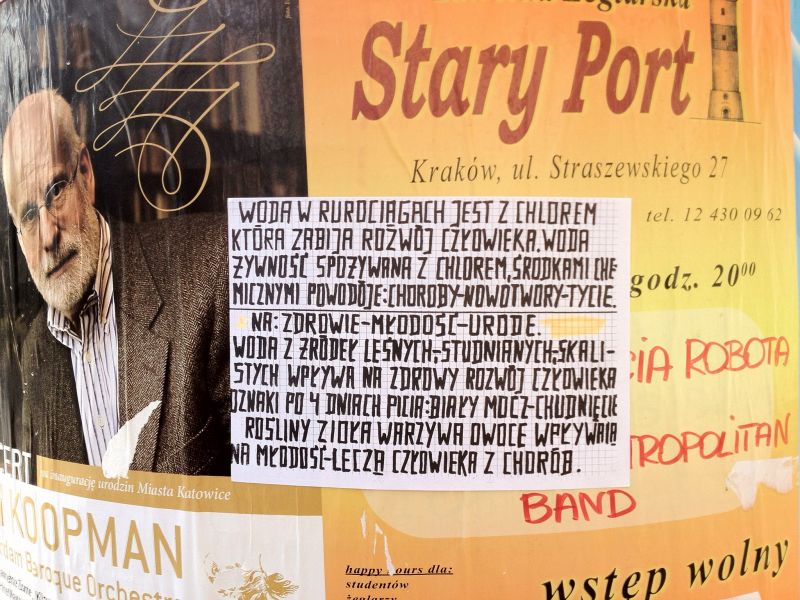 Stary Port
Kraków, ul. Straszewskiego 27
tel. 12 430 09 62
godz. 20⁰⁰
WODA W RUROCIĄGACH JEST Z CHLOREM
KTÓRA ZABIJA ROŻWÓJ CZŁOWIEKA. WODA
ŻYWNOŚĆ SPOŻYWANA Z CHLOREM, ŚRODKAMI CHE
MICZNYMI POWODÓJE: CHOROBY-NOWOTWORY-TYCIE.
NA: ZDROWIE-MŁODOŚĆ-URODE.
WODA Z ŻRÓDEŁ LEŚNYCH, STUDNIANYCH, SKALI-
STYCH WPŁYWA NA ZDROWY ROZWÓJ CZŁOWIEKA
OZNAKI PO 4 DNIACH PICIA: BIAŁY MOCZ-CHUDNIĘCIE
ROŚLINY ZIOŁA WARZYWA OWOCE WPŁYWAJĄ
NA MŁODOŚĆ-LECZĄ CZŁOWIEKA Z CHORÓB.
ROBOTA
BAND
na inaugurację urodzin Miasta Katowice
KOOPMAN
Baroque
happy hours dla:
studentów
żeglarzy
wstęp wolny